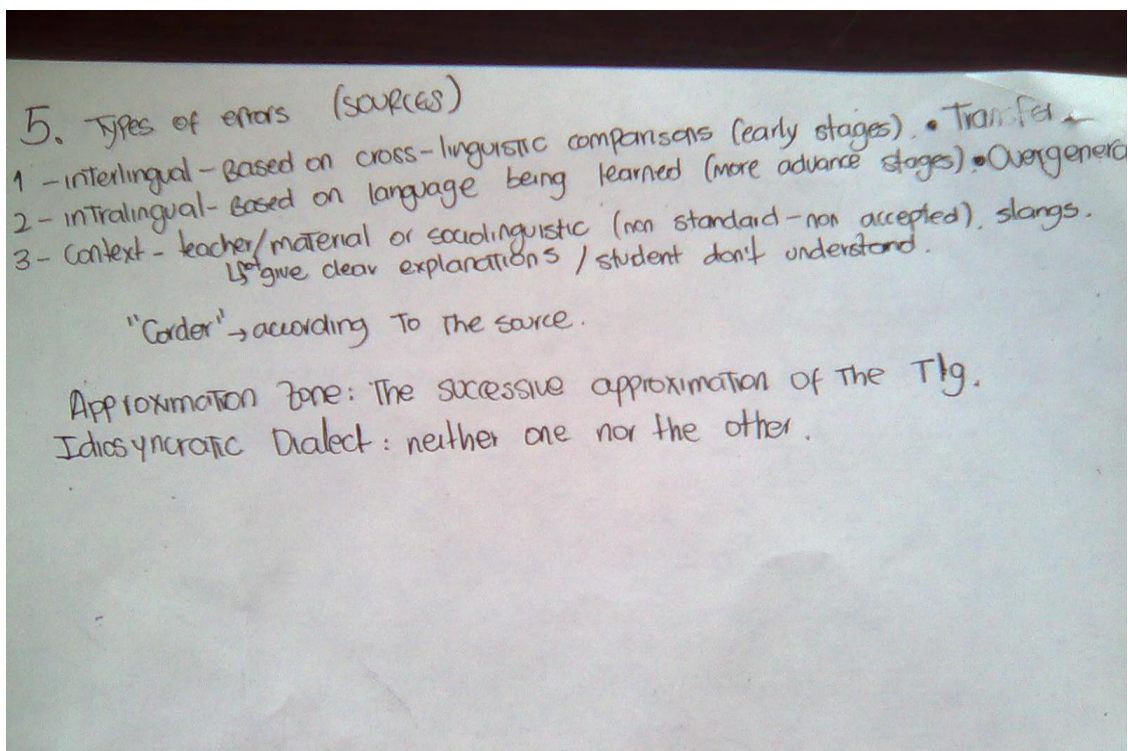 5. Types of errors (SOURCES)
1 - interlingual - Based on cross-linguistic comparisons (early stages). • Transfer
2 - intralingual - Based on language being learned (more advance stages) • Overgenera
3 - Context - teacher/material or sociolinguistic (non standard - non accepted), slangs.
give clear explanations / student don't understand.
"Corder" → according To The source.
Approximation Zone: The successive approximation of The Tlg.
Idiosyncratic Dialect: neither one nor the other.